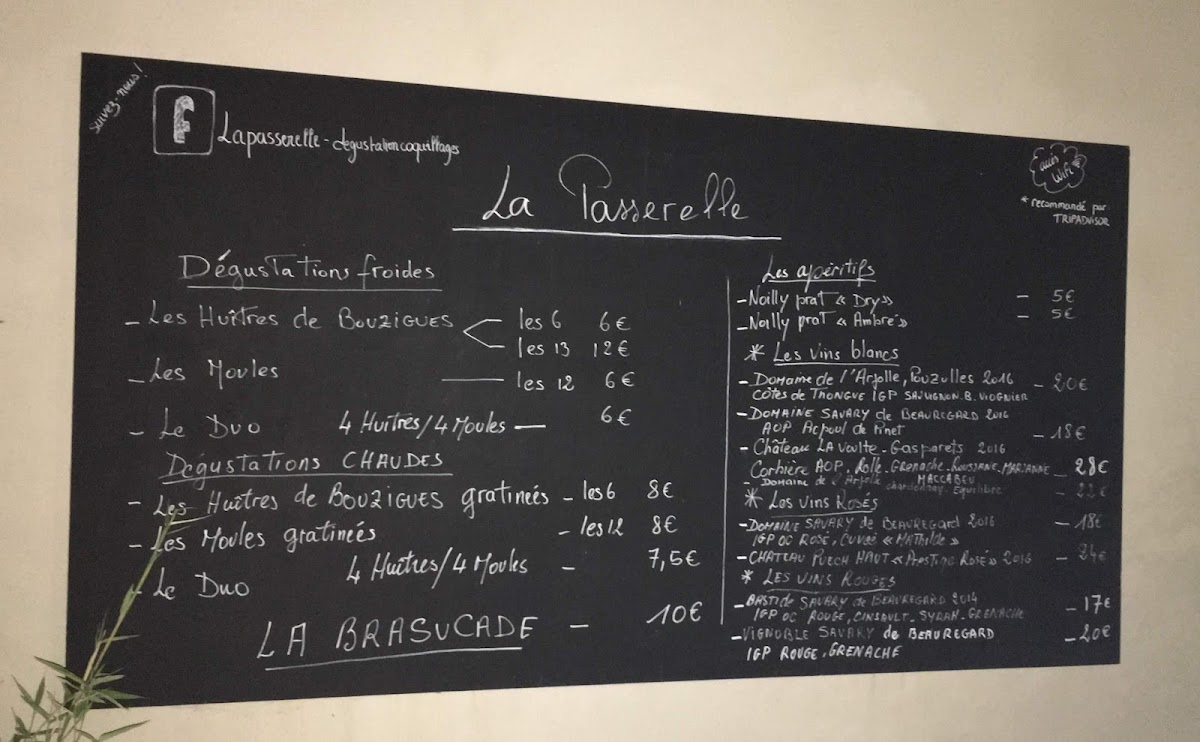 suivez-nous!
f
Lapasserelle - dégustationcoquillages
accès
WiFi
* recommandé par
TRIPADVISOR
La Passerelle
Dégustations froides
- Les Huîtres de BOUZIGUES
les 6 6€
les 13 12€
- Les Moules les 12 6€
- Le Duo 4 Huîtres/4 Moules — 6€
Dégustations CHAUDES
- Les Huîtres de BOUZIGUES gratineés - les 6 8€
- Les Moules gratineés - les 12 8€
- Le Duo 4 Huîtres/4 Moules - 7,5€
LA BRASUCADE - 10€
Les apéritifs
- Noilly prat « Dry » - 5€
- Noilly prat « Ambré » - 5€
* Les vins blancs
- Domaine de l'Arjolle, Pouzolles 2016 - 20€
CÔTES de THONGUE IGP SAUVIGNON.B. VIOGNIER
- DOMAINE SAVARY de BEAUREGARD 2016
AOP Picpoul de Pinet - 18€
- Château LA Voulte - Gasparets 2016
Corbière AOP. Rolle. Grenache. Roussane. MARSANNE - 28€
MACCABEU
- DOMAINE de l'Arjolle chardonnay. Equilibre - 22€
* Les vins Rosés
- DOMAINE SAVARY de BEAUREGARD 2016 - 18€
IGP OC ROSÉ, CUVÉE « MATHILDE »
- CHÂTEAU PUECH HAUT « Prestige Rosé » 2016 - 24€
* LES VINS ROUGES
- BASTIDE SAVARY de BEAUREGARD 2014 - 17€
IGP OC ROUGE, CINSAULT. SYRAH. GRENACHE
- VIGNOBLE SAVARY de BEAUREGARD - 20€
IGP ROUGE. GRENACHE